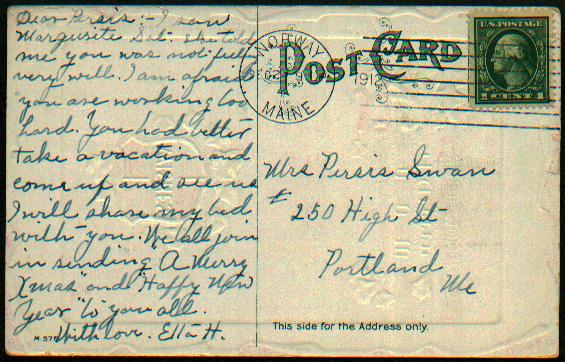 Dear Persis:- I saw
Marguerite Sat. She told
me you was not feeling
very well. I am afraid
you are working too
hard. You had better
take a vacation and
come up and see us
I will share my bed
with you. We all join
in sending A Merry
Xmas and Happy New
Year to you all.
With love. Ella H.
M 578
NORWAY
MAINE
1912
POST CARD
U.S. POSTAGE
1 CENT 1
Mrs Persis Swan
# 250 High St
Portland
Me
This side for the Address only.